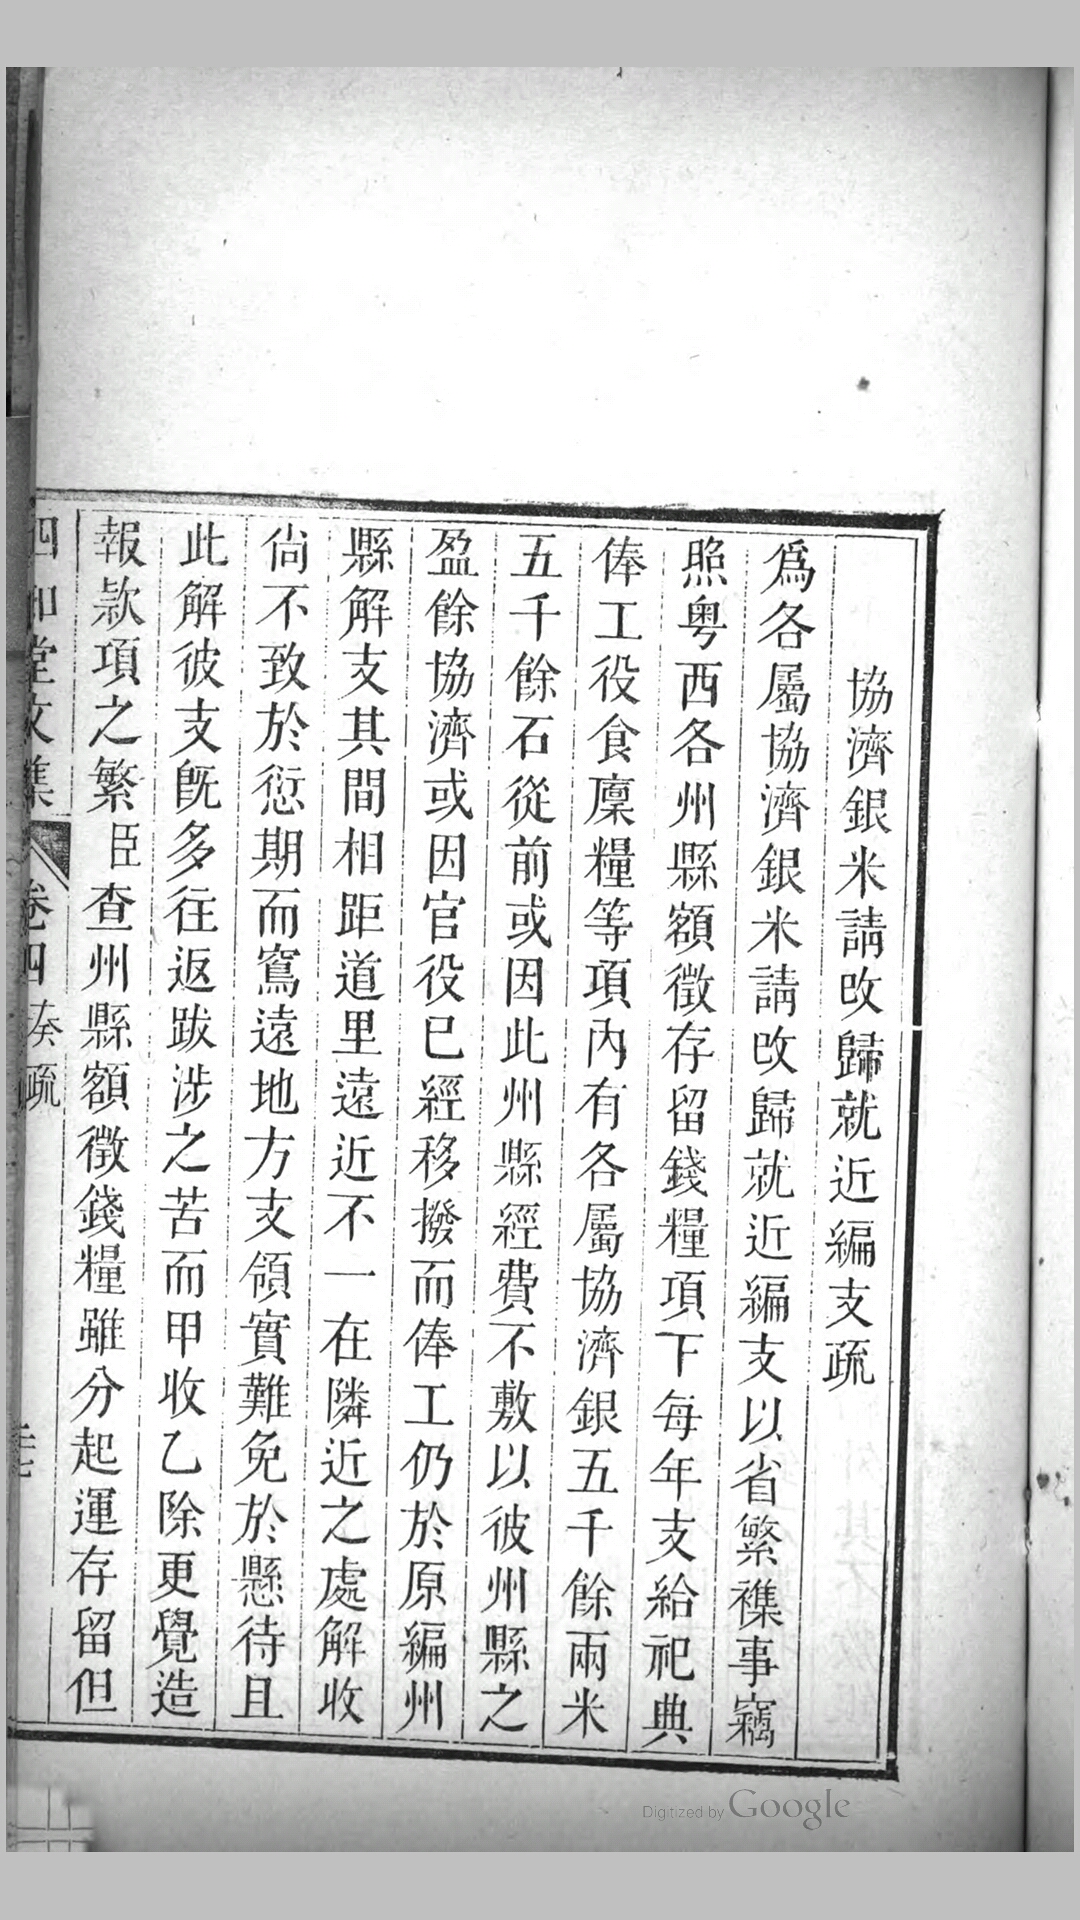 協濟銀米請改歸就近編支疏
爲各屬協濟銀米請改歸就近編支以省繁襍事竊
照粤西各州縣額徵存留錢糧項下每年支給祀典
俸工役食廩糧等項內有各屬協濟銀五千餘兩米
五千餘石從前或因此州縣經費不敷以彼州縣之
盈餘協濟或因官役已經移撥而俸工仍於原編州
縣解支其間相距道里遠近不一在隣近之處解收
尙不致於愆期而窵遠地方支領實難免於懸待且
此解彼支旣多往返跋涉之苦而甲收乙除更覺造
報款項之繁臣查州縣額徵錢糧雖分起運存留但
四知堂文集 卷四 奏疏
Digitized by Google